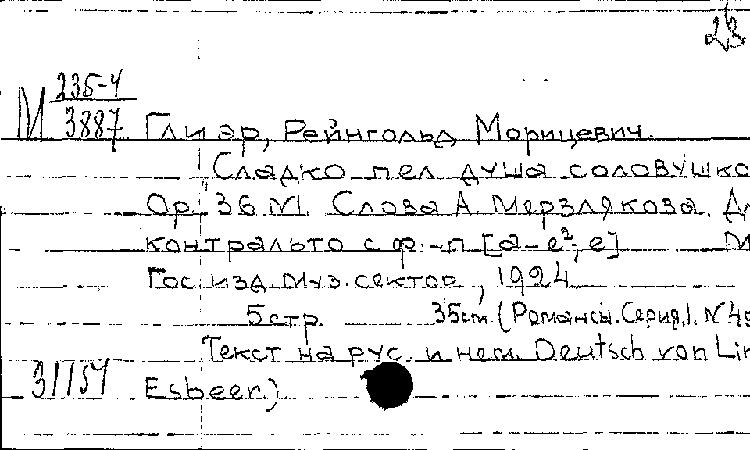 23
М 235-4
3887 Глиэр, Рейнгольд Морицевич.
Сладко пел душа соловушко
Op. 36 N1. Слова А. Мерзлякова. Дл
контральто с ф.-п [a-e²; e] М
Гос. изд. Муз. сектор, 1924
5 стр. 35 cm. (Романсы. Серия,). N
Текст на рус. и нем. Deutsch von Lin
31154 Esbeer.)